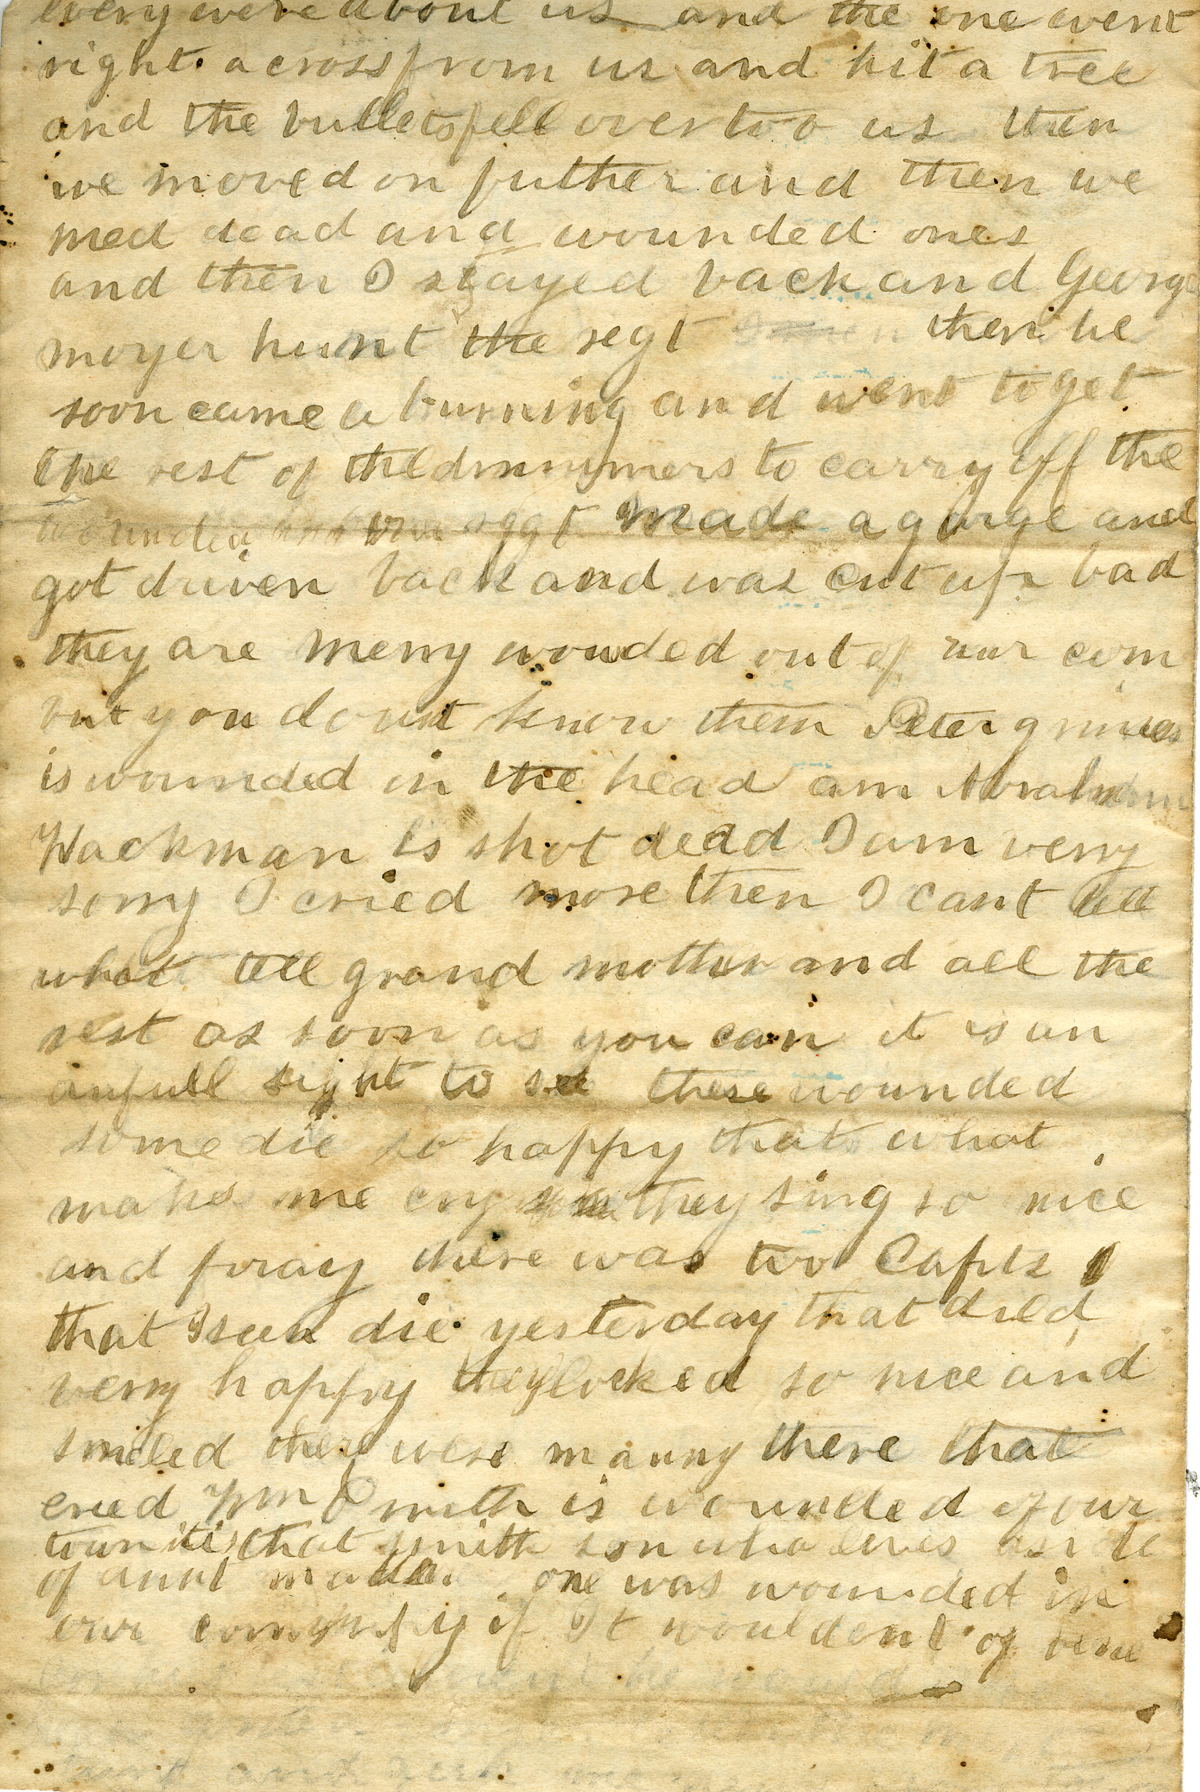 every were about us and the one went
right across from us and hit a tree
and the bullets fell over too us then
we moved on futher and then we
med dead and wounded ones
and then I stayed back and George
moyer hunt the regt then he
soon came a burning and went to get
the rest of the drummers to carry off the
wounded and the regt made a garge and
got driven back and was cut up bad
they are meny wouded out of our com
but you dount know them Peter
is wounded in the head am Abraham
Wackman is shot dead I am verry
sorry I cried more then I cant tell
what tell grand mother and all the
rest as soon as you can it is an
aufull sight to see these wounded
some die so happy that what
makes me cry they sing so nice
and pray there was two Capts
that I seen die yesterday that died
verry happy they looked so nice and
smiled there were manny there that
cried Wm Smith is wounded of our
town it is that Smith son who lives
of aunt one was wounded in
our company if It wouldent of bene